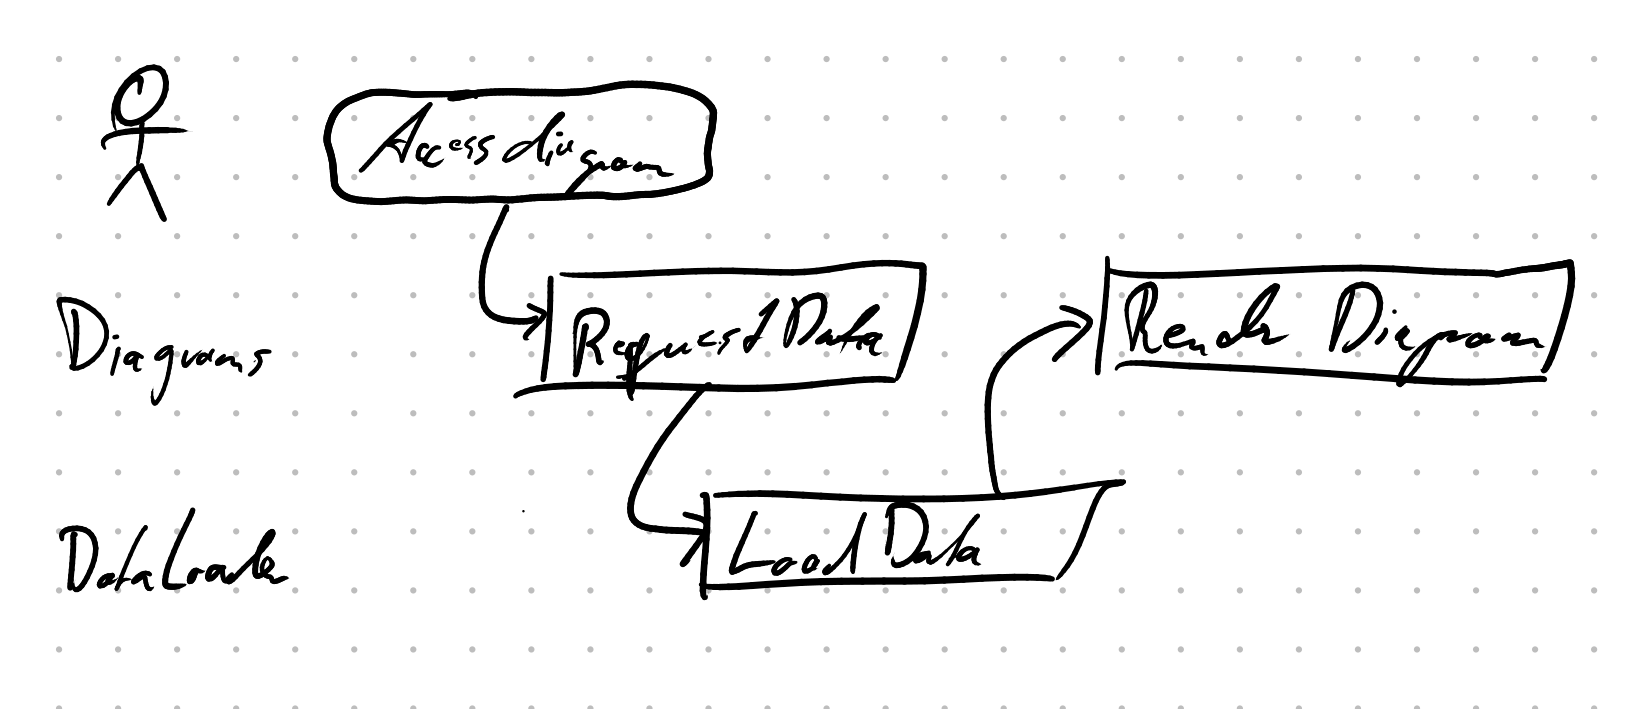 Access diagram
Diagrams
Request Data
Render Diagram
DataLoader
Load Data